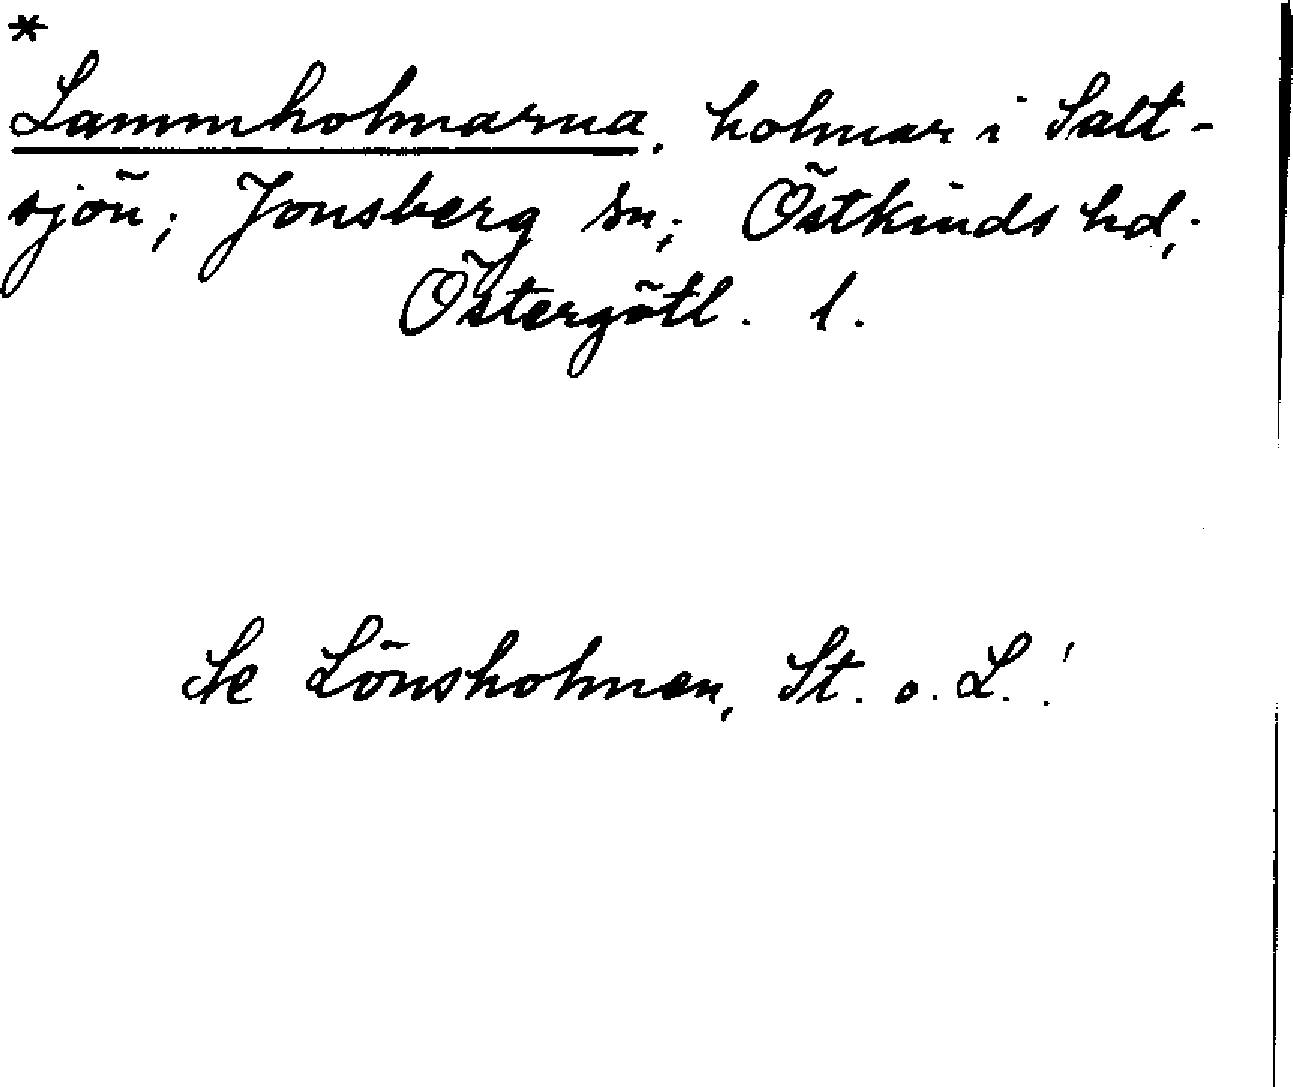 *
Lammholmarna, holmar i Salt-
sjön; Jonsberg sn; Östkinds hd;
Östergötl. l.
Se Lönsholmen, St. o. L.!